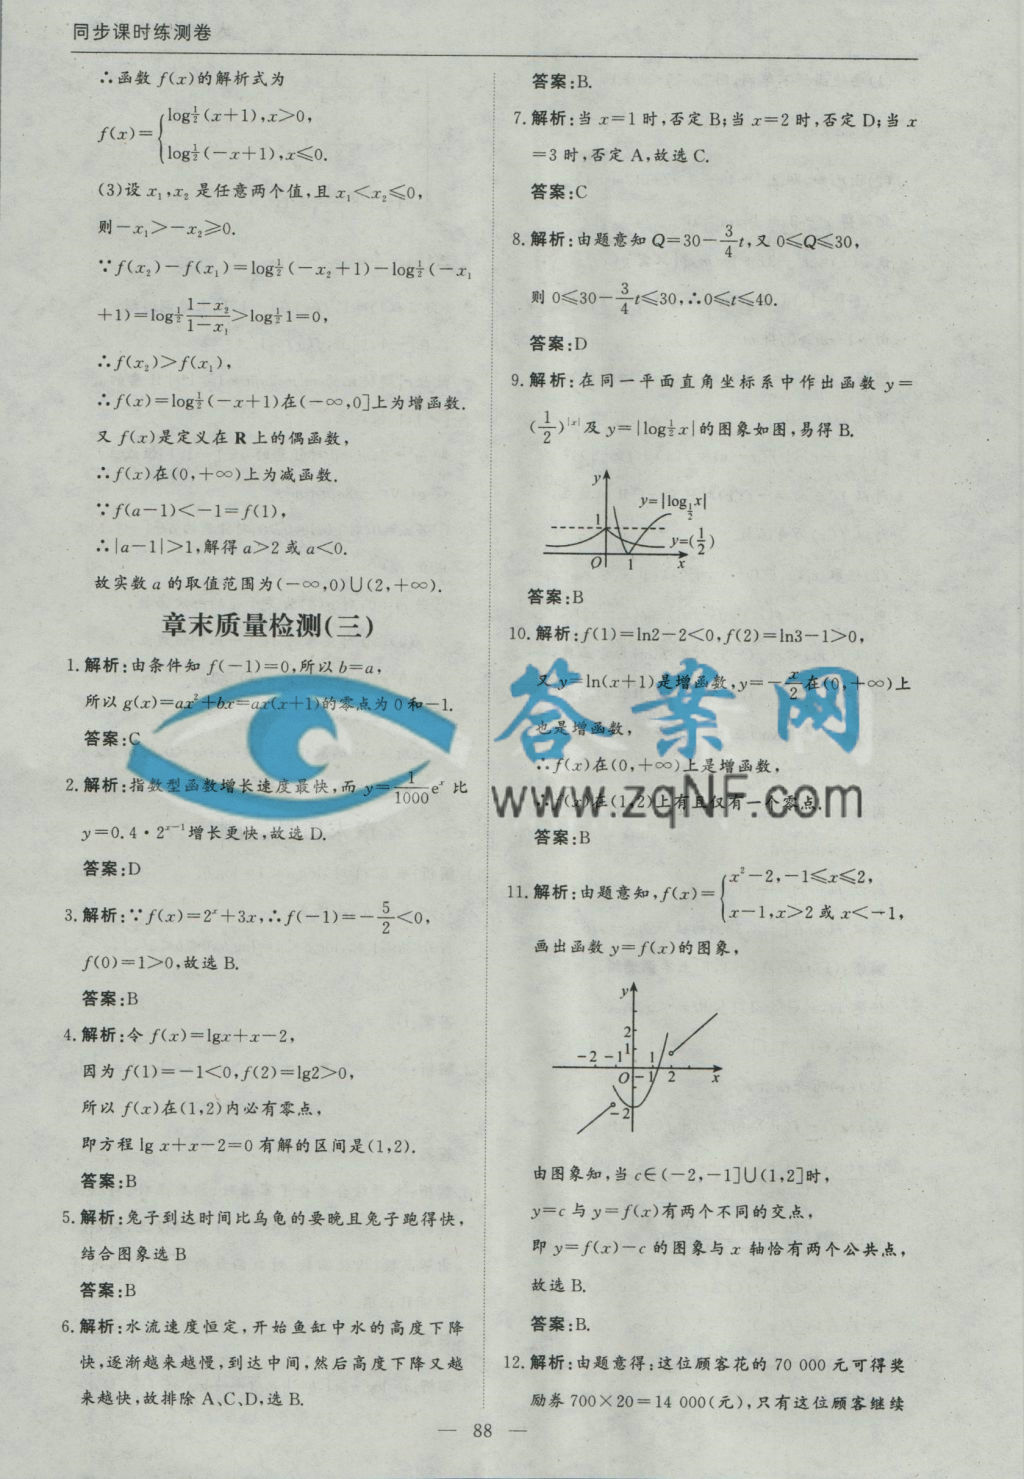 同步课时练测卷
∴函数 f(x)的解析式为
f(x)={log½(x+1),x>0,
log½(-x+1),x≤0.
(3)设 x₁,x₂ 是任意两个值,且 x₁<x₂≤0,
则-x₁>-x₂≥0.
∵f(x₂)-f(x₁)=log½(-x₂+1)-log½(-x₁
+1)=log½ (1-x₂)/(1-x₁)>log½1=0,
∴f(x₂)>f(x₁),
∴f(x)=log½(-x+1)在(-∞,0]上为增函数.
又 f(x)是定义在 R 上的偶函数,
∴f(x)在(0,+∞)上为减函数.
∵f(a-1)<-1=f(1),
∴|a-1|>1,解得 a>2 或 a<0.
故实数 a 的取值范围为(-∞,0)∪(2,+∞).
章末质量检测(三)
1.解析:由条件知 f(-1)=0,所以 b=a,
所以 g(x)=ax²+bx=ax(x+1)的零点为 0 和-1.
答案:C
2.解析:指数型函数增长速度最快,而 y=1/1000 eˣ 比
y=0.4·2ˣ⁻¹增长更快,故选 D.
答案:D
3.解析:∵f(x)=2ˣ+3x,∴f(-1)=-5/2<0,
f(0)=1>0,故选 B.
答案:B
4.解析:令 f(x)=lgx+x-2,
因为 f(1)=-1<0,f(2)=lg2>0,
所以 f(x)在(1,2)内必有零点,
即方程 lg x+x-2=0 有解的区间是(1,2).
答案:B
5.解析:兔子到达时间比乌龟的要晚且兔子跑得快,
结合图象选 B
答案:B
6.解析:水流速度恒定,开始鱼缸中水的高度下降
快,逐渐越来越慢,到达中间,然后高度下降又越
来越快,故排除 A、C、D,选 B.
答案:B.
7.解析:当 x=1 时,否定 B;当 x=2 时,否定 D;当 x
=3 时,否定 A,故选 C.
答案:C
8.解析:由题意知 Q=30-3/4 t,又 0≤Q≤30,
则 0≤30-3/4 t≤30,∴0≤t≤40.
答案:D
9.解析:在同一平面直角坐标系中作出函数 y=
(1/2)^|x|及 y=|log½x|的图象如图,易得 B.
y
y=|log½x|
1
y=(1/2)
O 1 x
答案:B
10.解析:f(1)=ln2-2<0,f(2)=ln3-1>0,
又 y=ln(x+1)是增函数,y=-x/2在(0,+∞)上
也是增函数,
∴f(x)在(0,+∞)上是增函数,
∴f(x)在(1,2)上有且仅有一个零点.
答案:B
答案网
www.zqNF.com
11.解析:由题意知,f(x)={x²-2,-1≤x≤2,
x-1,x>2 或 x<-1,
画出函数 y=f(x)的图象,
y
2
-2 -1 1 1
O -1 2 x
-2
由图象知,当 c∈(-2,-1]∪(1,2]时,
y=c 与 y=f(x)有两个不同的交点,
即 y=f(x)-c 的图象与 x 轴恰有两个公共点,
故选 B.
答案:B.
12.解析:由题意得:这位顾客花的 70 000 元可得奖
励券 700×20=14 000(元),只有这位顾客继续
— 88 —